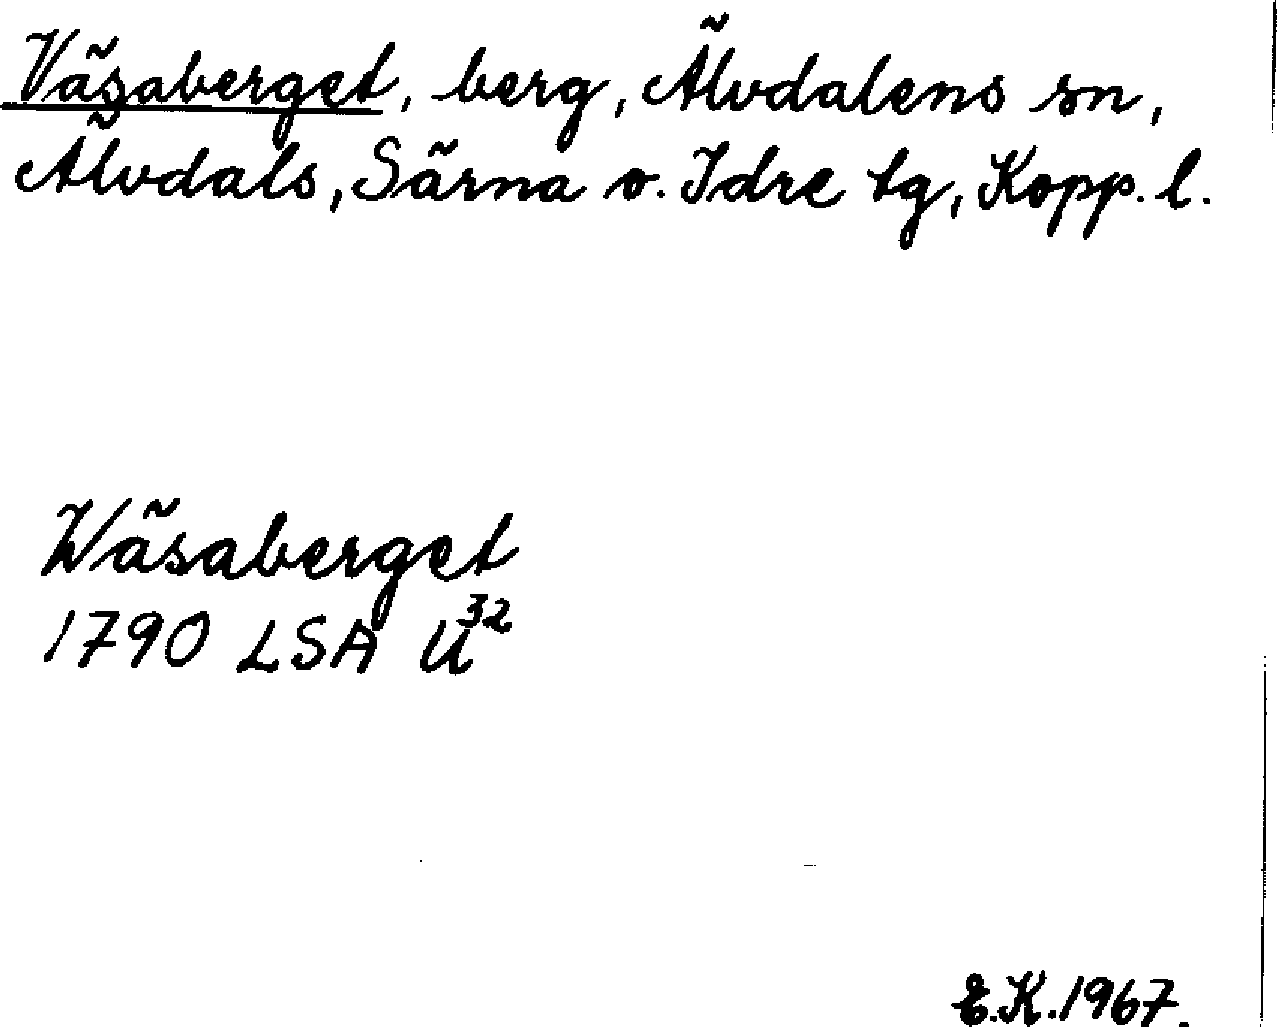 Väsaberget, berg, Älvdalens sn,
Älvdals, Särna o. Idre tg, Kopp. l.
Wäsaberget
1790 LSA U³²
E.K. 1967.